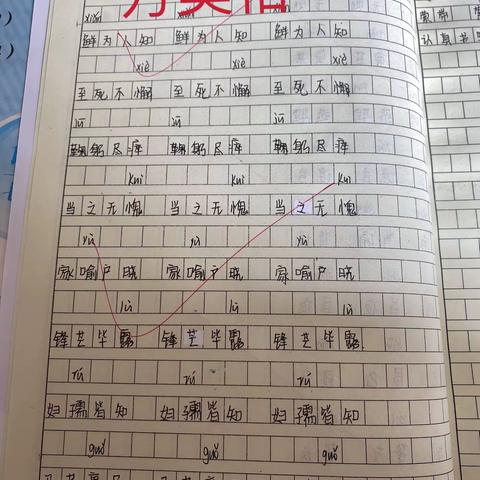 xiǎn
鲜为人知 鲜为人知 鲜为人知
xiè xiè xiè
至死不懈 至死不懈 至死不懈
jū jū jū
鞠躬尽瘁 鞠躬尽瘁 鞠躬尽瘁
kuì kuì kuì
当之无愧 当之无愧 当之无愧
yù yù yù
家喻户晓 家喻户晓 家喻户晓
lù lù lù
锋芒毕露 锋芒毕露 锋芒毕露
rú rú rú
妇孺皆知 妇孺皆知 妇孺皆知
guǒ guǒ guǒ
认真书